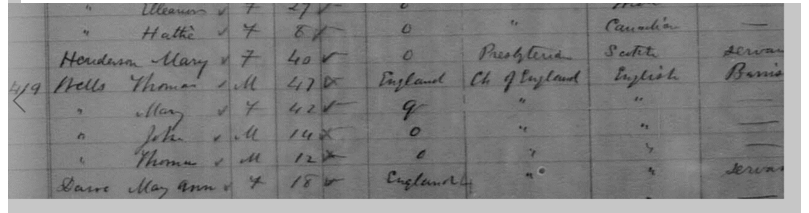 " Eleanor F 27 0
" Hattie F 8 0 " Canadian —
Henderson Mary F 40 0 Presbyterian Scotch Servan
419 Wells Thomas M 47 England Ch of England English Barris
" Mary F 42 q " " —
" John M 14 0 " " —
" Thomas M 12 0 " " —
May Ann F 18 England " " Servan